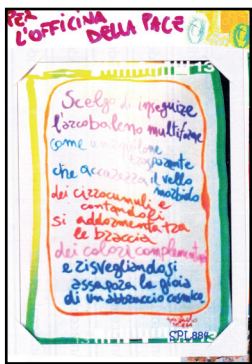 PER
L'OFFICINA
DELLA PACE
13
Scelgo di inseguire
l'arcobaleno multiforme
come un aquilone
trasparente
che accarezza il vello
morbido
dei cirrocumuli e
contandoli
si addormenta tra
le braccia
dei colori complementari
e risvegliandosi
assapora la gioia
di un abbraccio cosmico
SPL 884